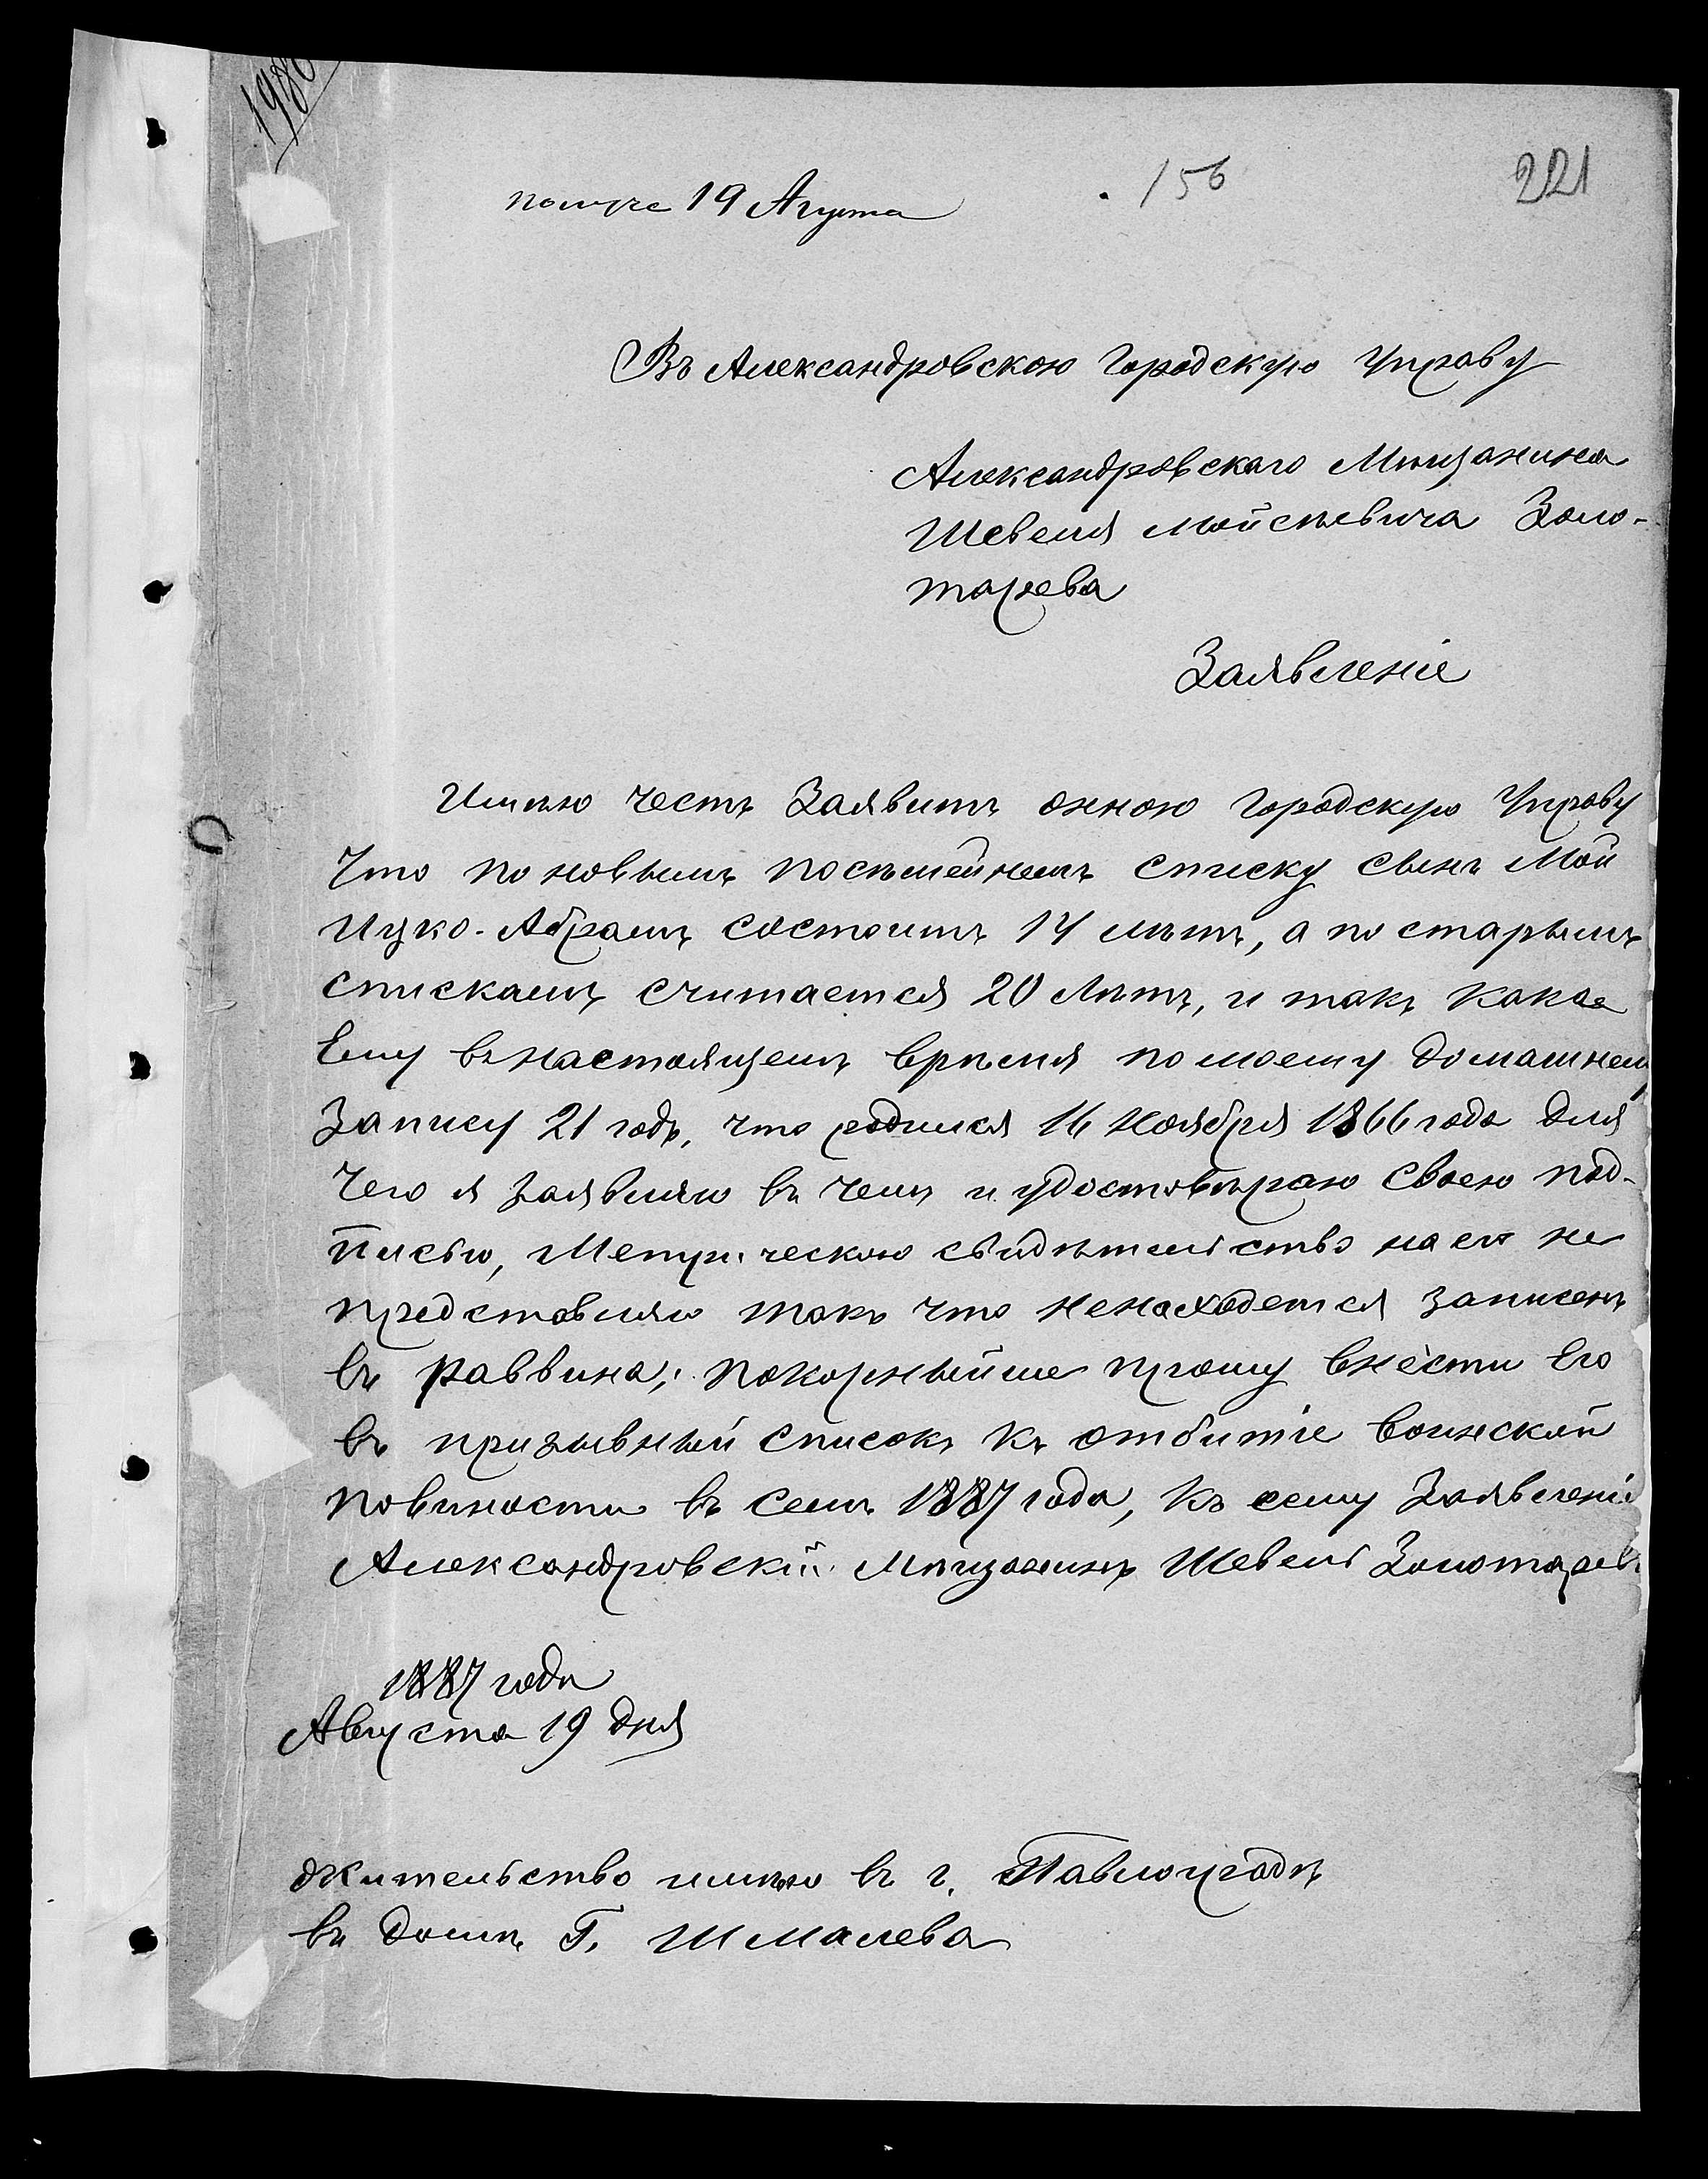 198
получе 19 Августа
156
221
Въ Александровскою Городскую Управу
Александровскаго Мѣщанина
Шевеля Мойсѣевича Золо-
тарева
Заявленіе
Имѣю честь Заявить онною Городскую Управу
Что по новымъ посѣмейнемъ списку сынъ Мой
Ицко-Абрамъ состоитъ 14 лѣтъ, а по старымъ
спискамъ считается 20 Лѣтъ, и такъ какъ
Ему внастоящемъ врѣмя по моему домашнему
Запису 21 годъ, что родился 16 Ноября 1866 года для
Чего я заявляю въ чемъ и удостовѣраю своею под-
писью, Метрическою свидѣтельство на его не
представляю такъ что ненаходется записенъ
въ раввина, покорнѣйше прошу внести Его
въ призывный списокъ къ отбитіе воинской
повиности въ семъ 1887 года, Къ сему Заявленіе
Александровскій Мѣщанинъ Шевель Золотарев
1887 года
Августа 19 дня
Жительство имѣю въ г. Павлоградѣ
въ домѣ Г. Шмалева